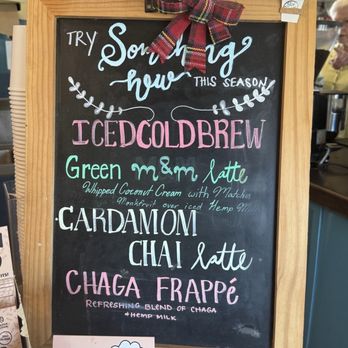 TRY Something
new THIS SEASON
ICED COLD BREW
Green m&m latte
Whipped Coconut Cream with Matcha
Monkfruit over iced Hemp
CARDAMOM
CHAI latte
CHAGA FRAPPé
REFRESHING BLEND OF CHAGA
+HEMP MILK